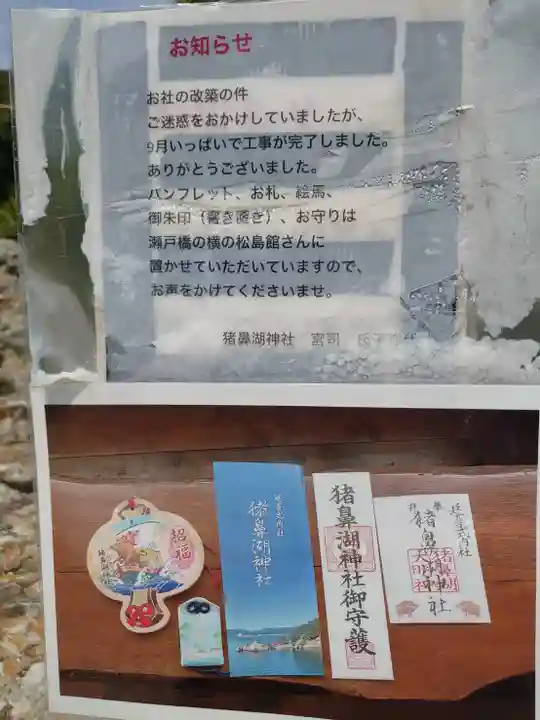 お知らせ
お社の改築の件
ご迷惑をおかけしていましたが、
9月いっぱいで工事が完了しました。
ありがとうございました。
パンフレット、お札、絵馬、
御朱印（書き置き）、お守りは
瀬戸橋の横の松島館さんに
置かせていただいていますので、
お声をかけてくださいませ。
猪鼻湖神社 宮司
招福
猪鼻湖神社
延喜式内社
猪鼻湖神社
猪鼻湖神社御守護
延喜式内社
奉拝
猪鼻湖神社